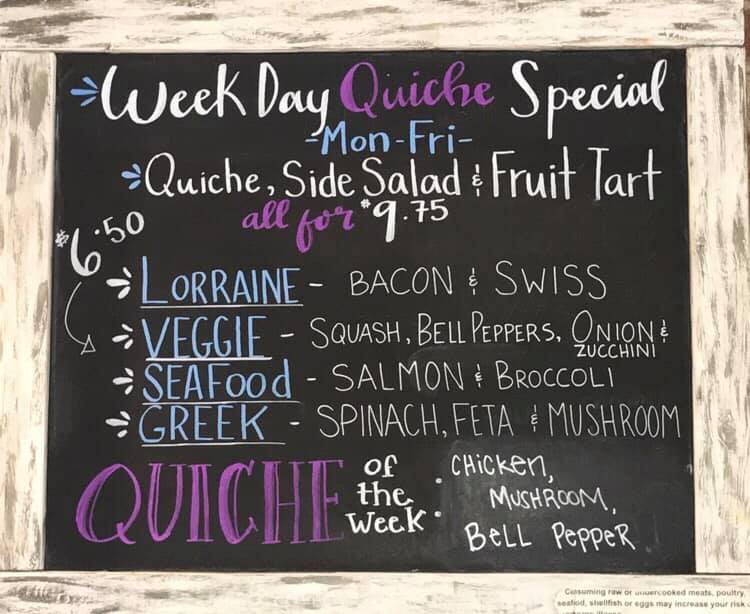 Week Day Quiche Special
-Mon-Fri-
Quiche, Side Salad & Fruit Tart
all for $9.75
$6.50
LORRAINE - BACON & SWISS
VEGGIE - SQUASH, BELL PEPPERS, ONION &
ZUCCHINI
SEAFood - SALMON & BROCCOLI
GREEK - SPINACH, FETA & MUSHROOM
QUICHE of the Week: CHicken,
MUSHROOM,
BeLL PeppeR
Consuming raw or undercooked meats, poultry,
seafood, shellfish or eggs may increase your risk